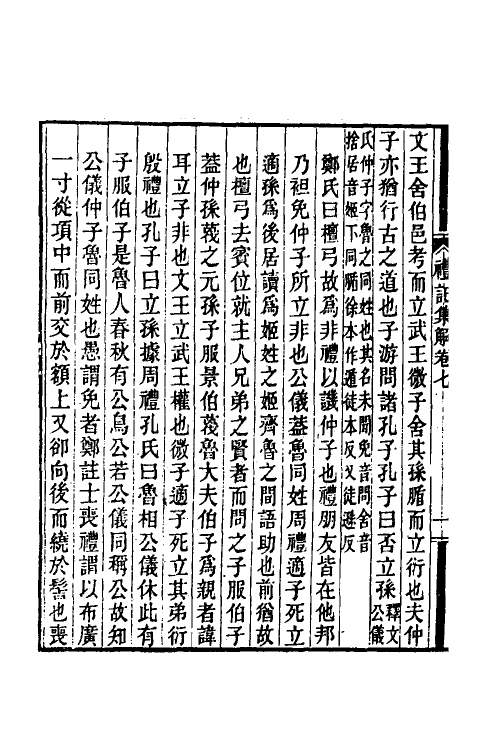 禮記集解卷七
一
文王舍伯邑考而立武王微子舍其孫腯而立衍也夫仲
子亦猶行古之道也子游問諸孔子孔子曰否立孫釋文公儀
氏仲子字魯之同姓也其名未聞免音問舍音
捨居音姬下同腯徐本作遁徒本反又徒遜反
鄭氏曰檀弓故爲非禮以譏仲子也禮朋友皆在他邦
乃袒免仲子所立非也公儀蓋魯同姓周禮適子死立
適孫爲後居讀爲姬姓之姬齊魯之間語助也前猶故
也檀弓去賓位就主人兄弟之賢者而問之子服伯子
蓋仲孫蔑之元孫子服景伯蔑魯大夫伯子爲親者諱
耳立子非也文王立武王權也微子適子死立其弟衍
殷禮也孔子曰立孫據周禮孔氏曰魯相公儀休此有
子服伯子是魯人春秋有公鳥公若公儀同稱公故知
公儀仲子魯同姓也愚謂免者鄭註士喪禮謂以布廣
一寸從項中而前交於額上又卻向後而繞於髻也喪